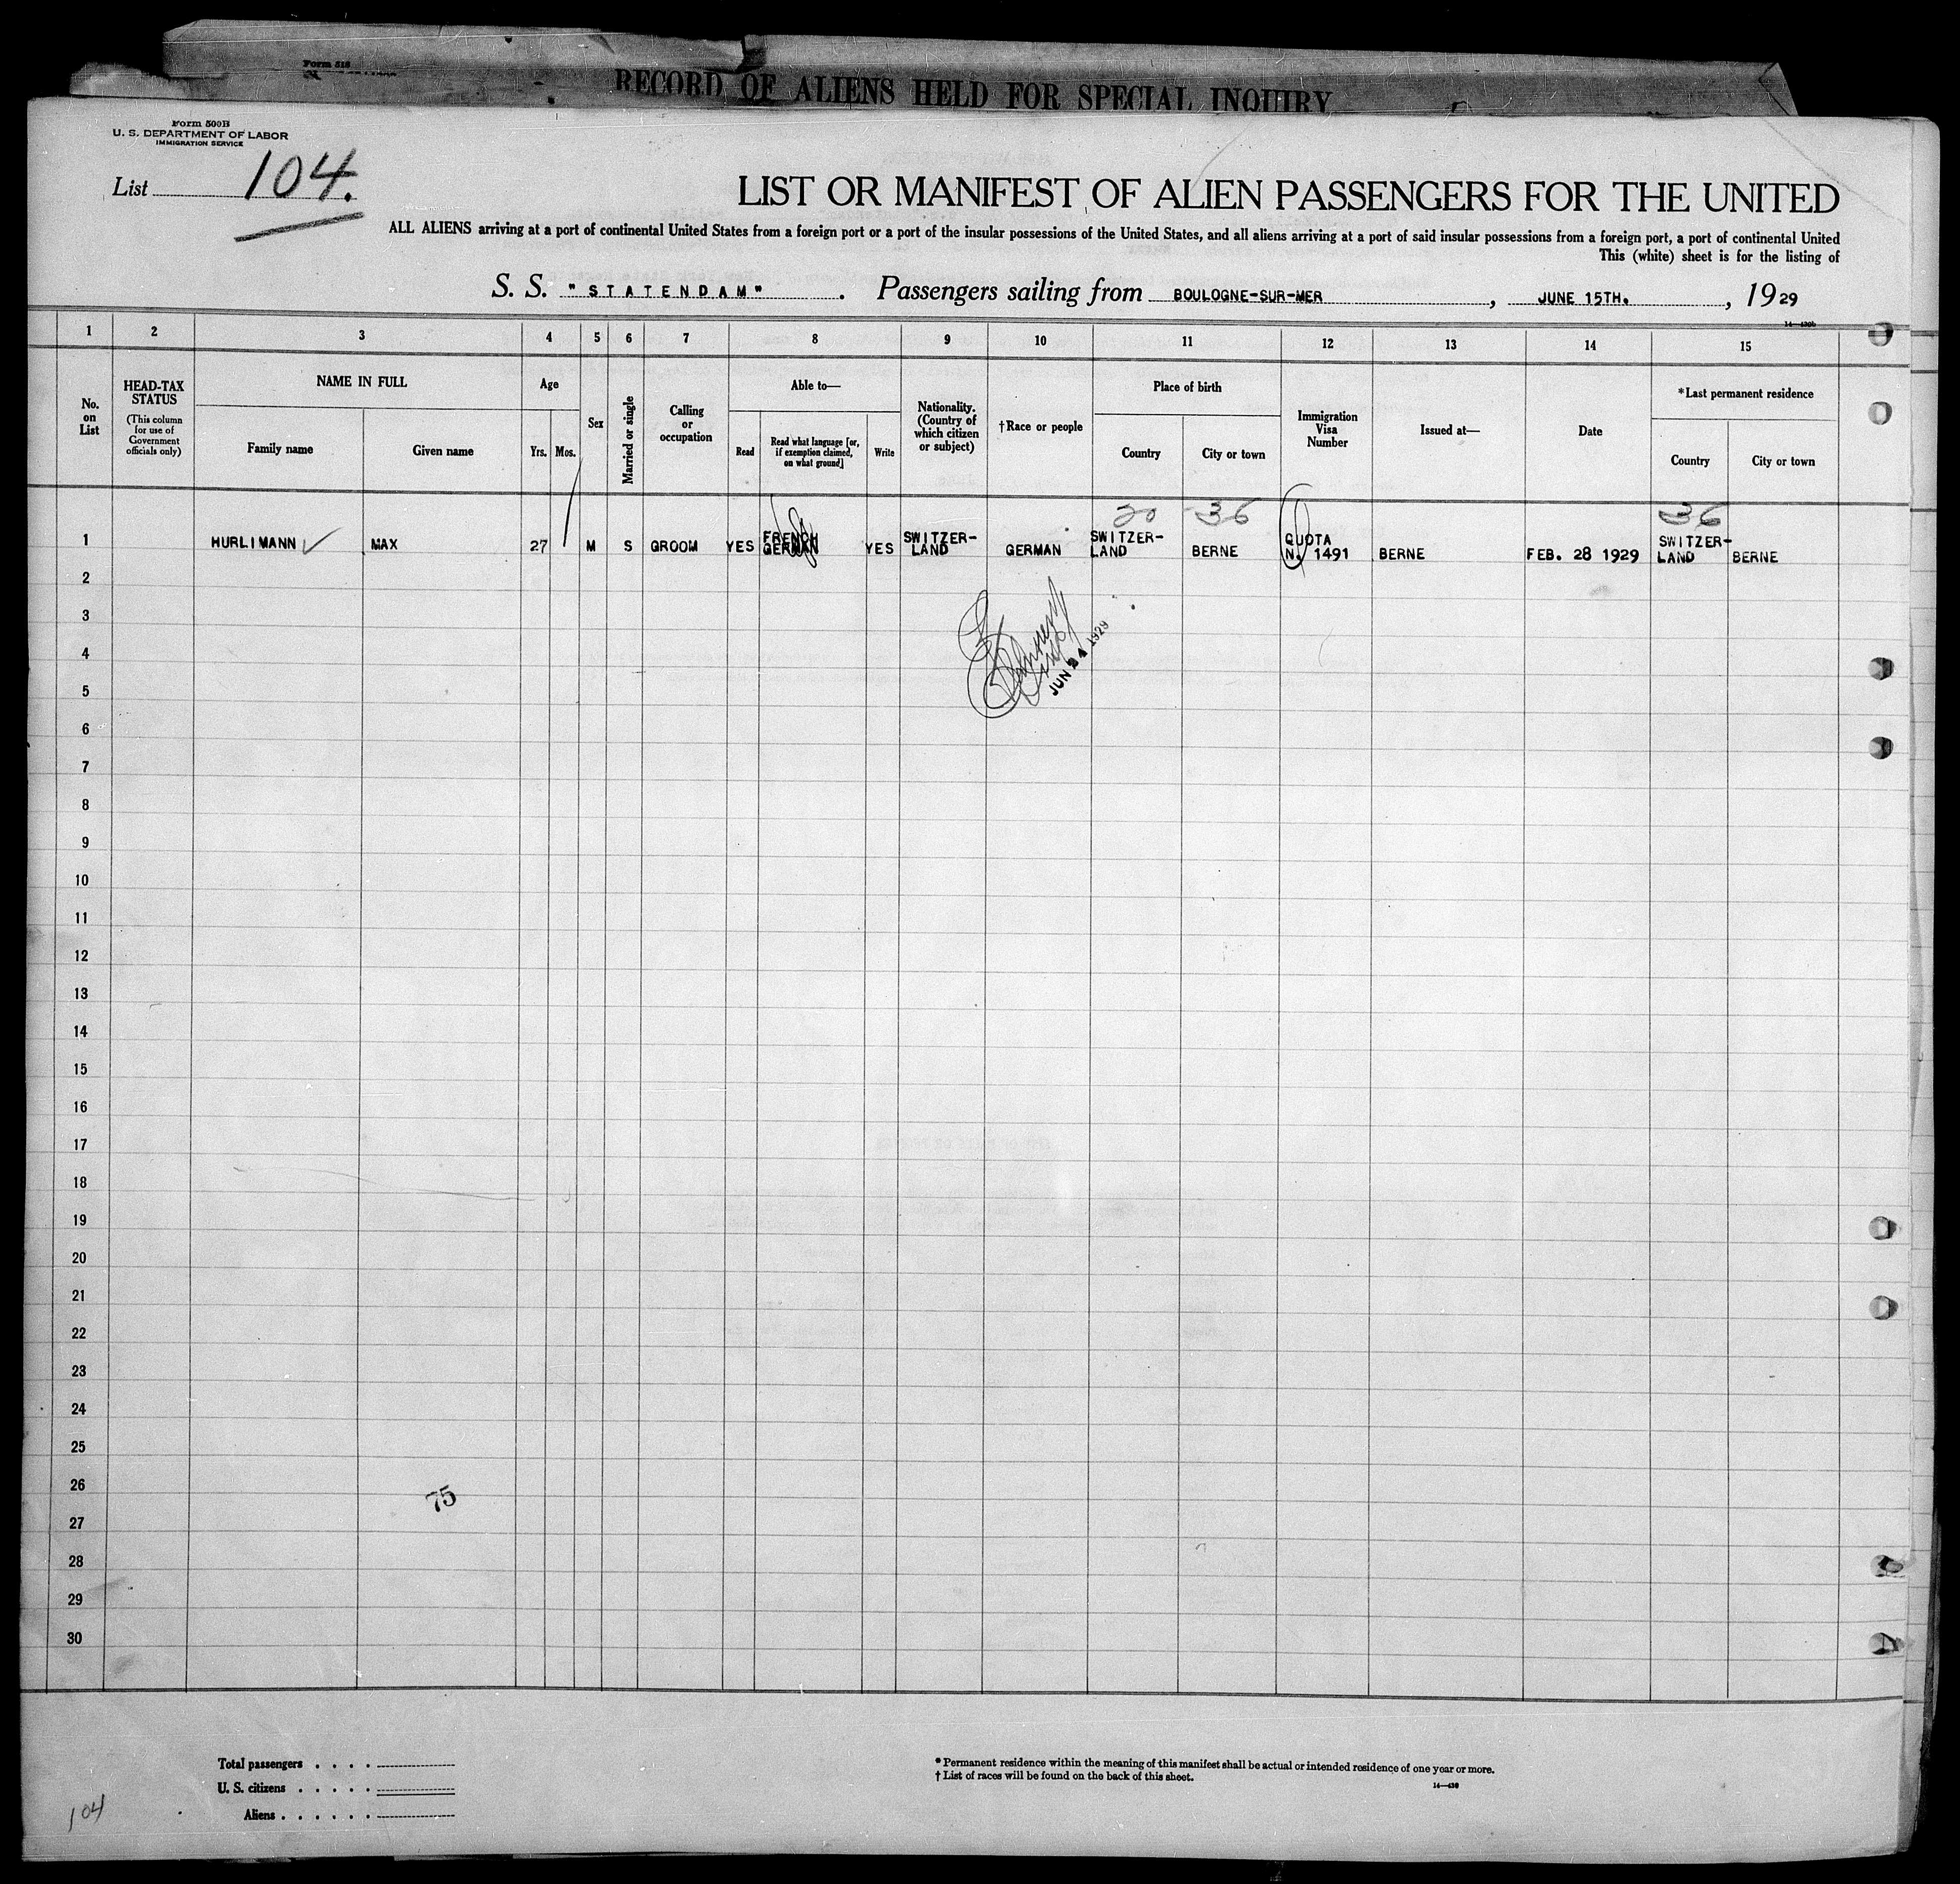 Form 518
RECORD OF ALIENS HELD FOR SPECIAL INQUIRY
Form 500B
U. S. DEPARTMENT OF LABOR
IMMIGRATION SERVICE
List 104.
LIST OR MANIFEST OF ALIEN PASSENGERS FOR THE UNITED
ALL ALIENS arriving at a port of continental United States from a foreign port or a port of the insular possessions of the United States, and all aliens arriving at a port of said insular possessions from a foreign port, a port of continental United
This (white) sheet is for the listing of
S. S. "STATENDAM". Passengers sailing from BOULOGNE-SUR-MER, JUNE 15TH., 1929
1 2 3 4 5 6 7 8 9 10 11 12 13 14 15
No. on List
HEAD-TAX STATUS
(This column for use of Government officials only)
NAME IN FULL
Family name
Given name
Age
Yrs.
Mos.
Sex
Married or single
Calling or occupation
Able to—
Read
Read what language [or, if exemption claimed, on what ground]
Write
Nationality. (Country of which citizen or subject)
†Race or people
Place of birth
Country
City or town
Immigration Visa Number
Issued at—
Date
*Last permanent residence
Country
City or town
20 36 36
1 HURLIMANN MAX 27 M S GROOM YES FRENCH GERMAN YES SWITZER-LAND GERMAN SWITZER-LAND BERNE QUOTA N. 1491 BERNE FEB. 28 1929 SWITZER-LAND BERNE
2
3
JUN 24 1929
4
5
6
7
8
9
10
11
12
13
14
15
16
17
18
19
20
21
22
23
24
25
26
75
27
28
29
30
Total passengers . . . .
U. S. citizens . . . . .
Aliens . . . . . .
* Permanent residence within the meaning of this manifest shall be actual or intended residence of one year or more.
† List of races will be found on the back of this sheet.
14—430
104